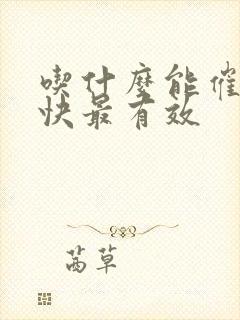 喫什麼能催
快最有效
茜草